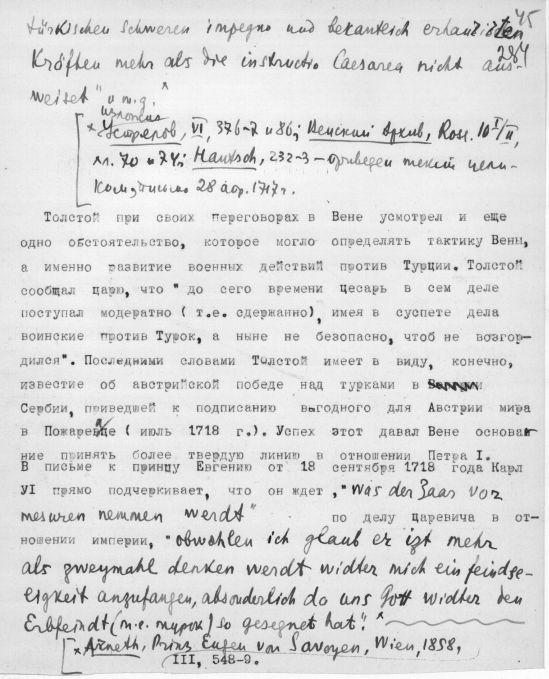 45
türkischen schweren impegno und bekantlich erhaudisten
284
Kräften mehr als die instructio Caesarea nicht aus-
weiset" и т.д. ×
изложил
× Устрялов, VI, 376-7 и 86; Венский Архив, Ross. 10 I/II,
лл. 70 и 74; Hantsch, 232-3 — приведен текст цели-
ком, письмо 28 апр. 1717 г.
Толстой при своих переговорах в Вене усмотрел и еще
одно обстоятельство, которое могло определять тактику Вены,
а именно развитие военных действий против Турции. Толстой
сообщал царю, что " до сего времени цесарь в сем деле
поступал модератно ( т.е. сдержанно), имея в суспете дела
воинские против Турок, а ныне не безопасно, чтоб не возгор-
дился". Последними словами Толстой имеет в виду, конечно,
известие об австрийской победе над турками в
Сербии, приведшей к подписанию выгодного для Австрии мира
в Пожаревце ( июль 1718 г.). Успех этот давал Вене основа-
ние принять более твердую линию в отношении Петра I.
В письме к принцу Евгению от 18 сентября 1718 года Карл
УІ прямо подчеркивает, что он ждет, "was der Zaar vor
mesuren nemmen werdt" по делу царевича в от-
ношении империи, "obwohlen ich glaub er izt mehr
als zweymahl denken werdt widter mich ein feindse-
ligkeit anzufangen, absonderlich da uns Gott widter den
Erbfeindt (т.е. турок) so gesegnet hat". ×
× Arneth, Prinz Eugen von Savoyen, Wien, 1858,
III, 548-9.